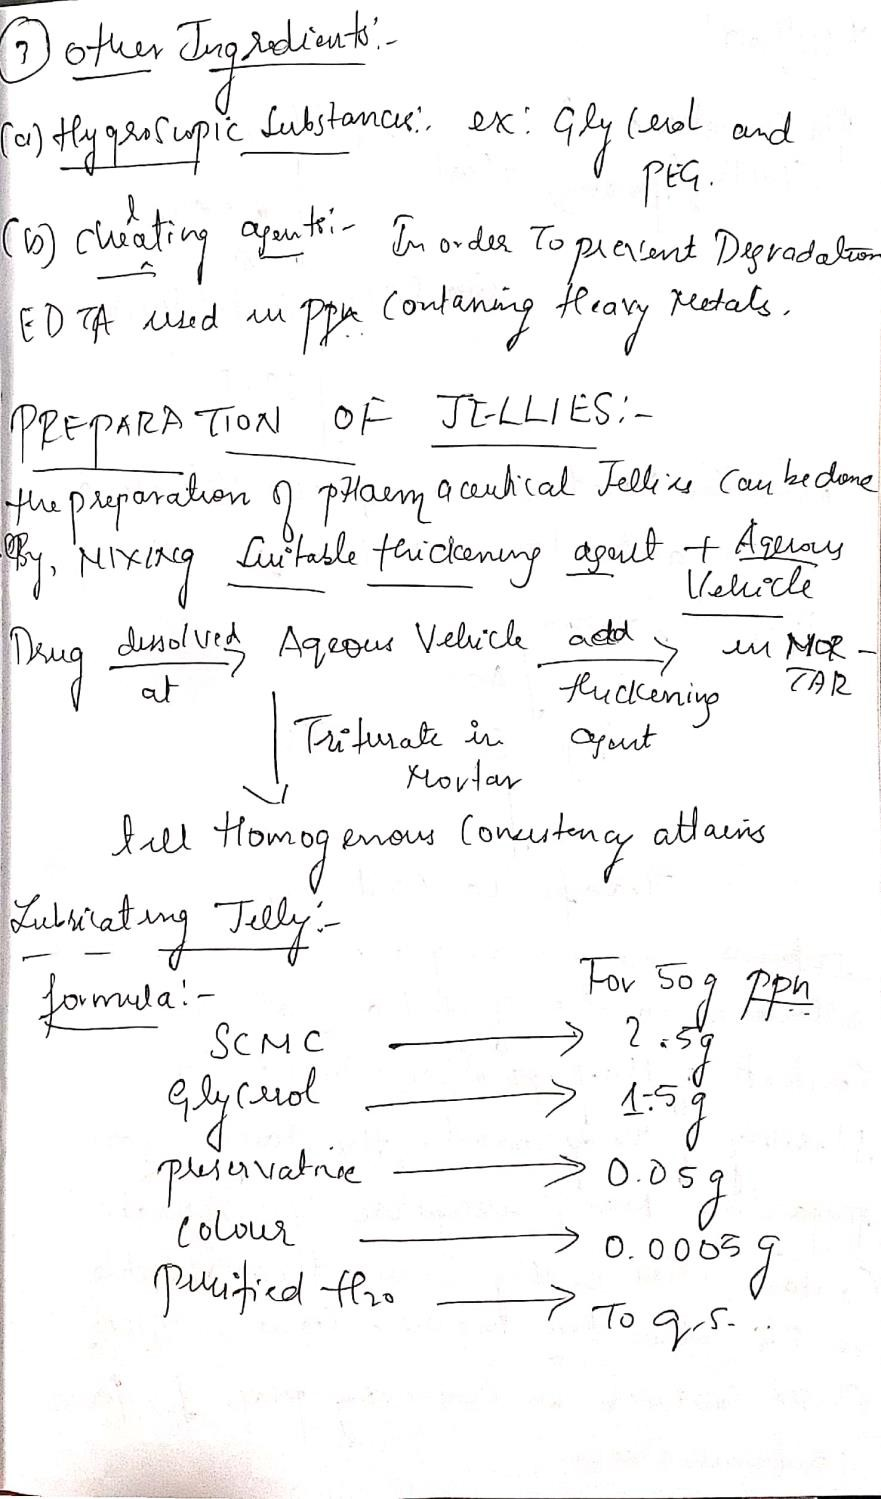 ? Other Ingredients:-
(a) Hygroscopic Substances:. ex: Glycerol and
PEG.
(b) cheating agents:- In order To prevent Degradation
EDTA used in ppn Contaning Heavy Metals.
PREPARATION OF JELLIES:-
the preparation of pHarmaceutical Jellies can be done
By, MIXING Suitable thickening agent + Aqeous
Vehicle
Drug dissolved at → Aqeous Vehicle add thickening agent → in MOR-
TAR
Triturate in
Mortar
till Homogenous Consistency attains
Lubricating Jelly:-
formula:- For 50g ppn
SCMC → 2.5g
Glycerol → 1.5g
preservative → 0.05g
Colour → 0.0005g
Purified H20 → To q.s...